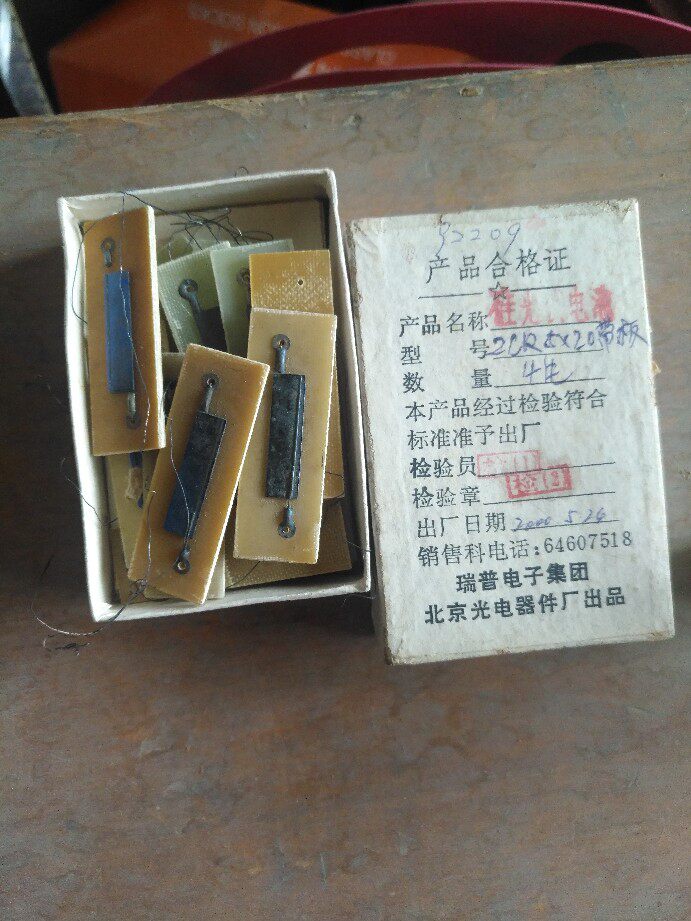 92209
产品合格证
产品名称 硅光电池
型 号 2CR 5×20带板
数 量 4支
本产品经过检验符合
标准准予出厂
检验员
检验章
出厂日期 2000 5.26
销售科电话:64607518
瑞普电子集团
北京光电器件厂出品